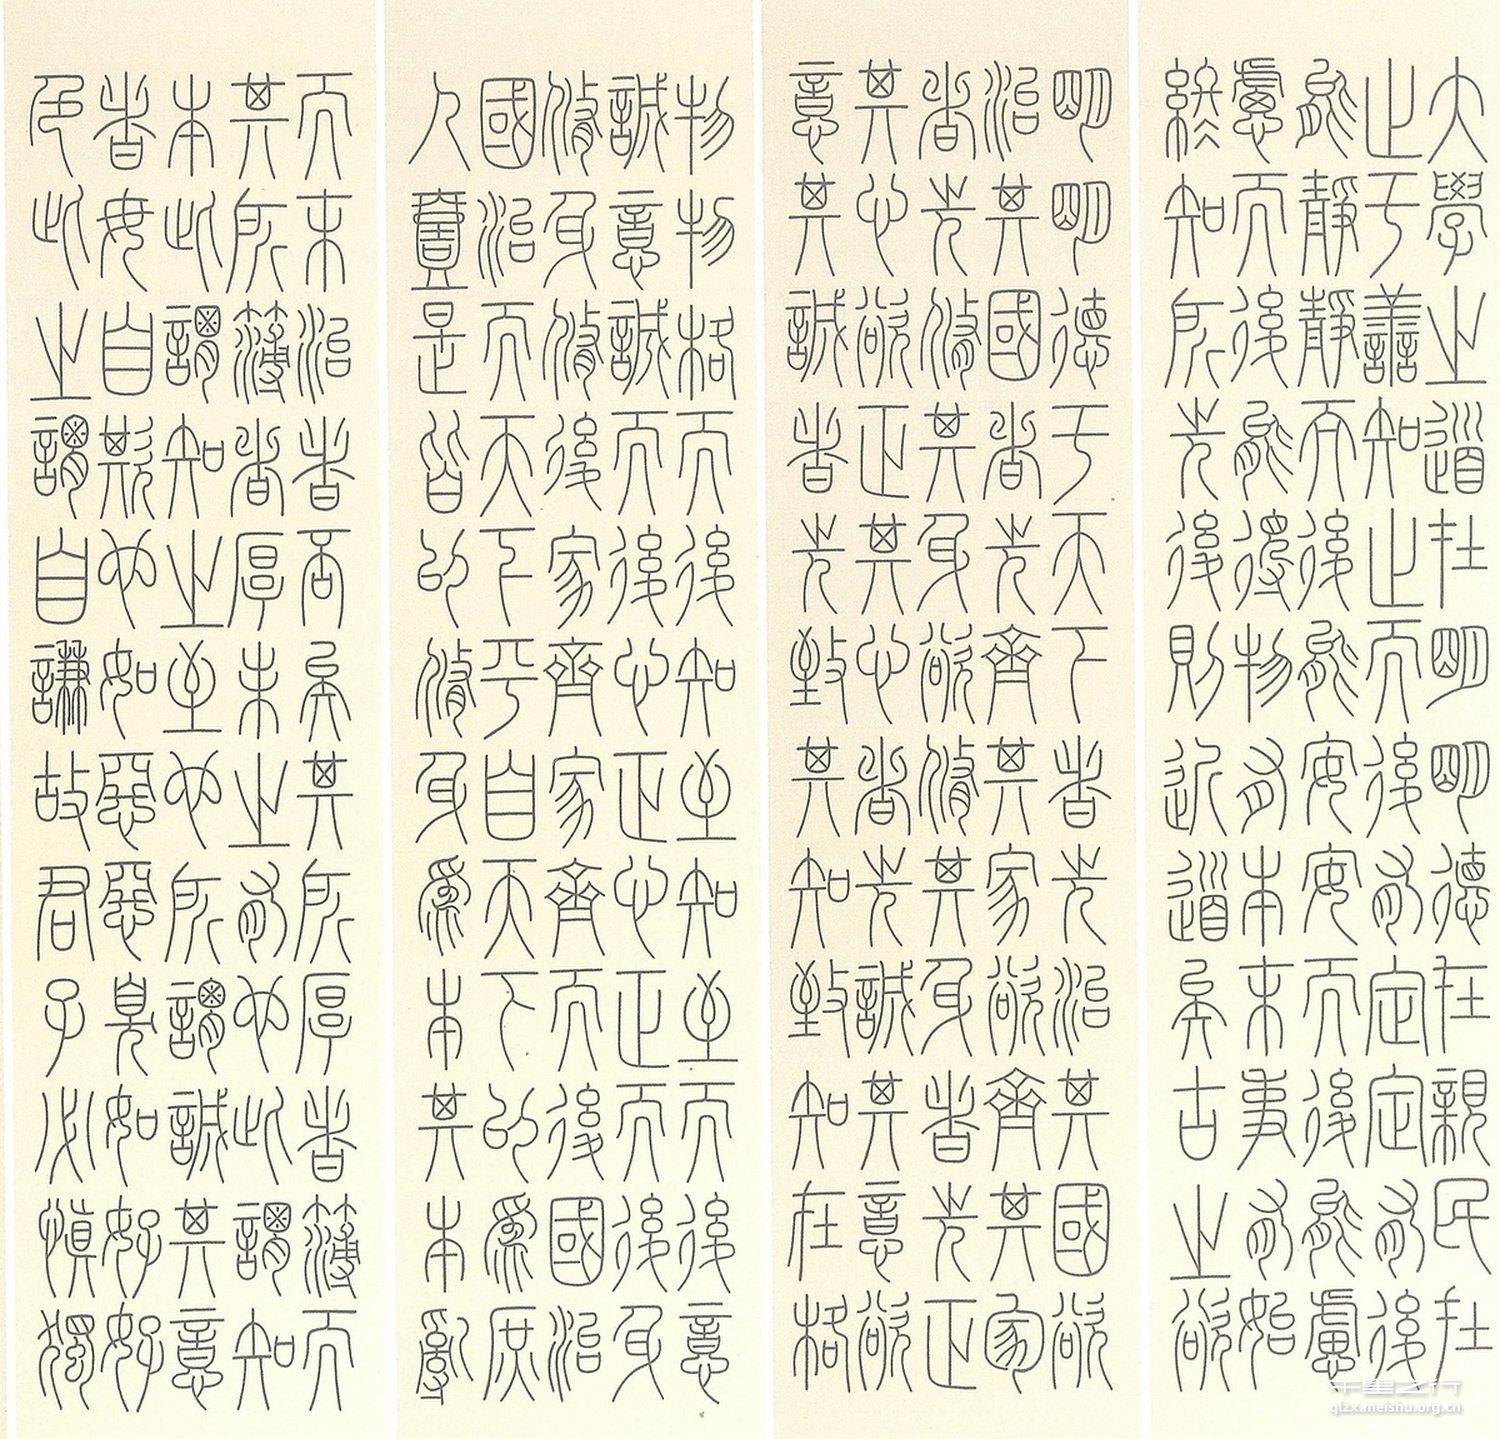 大學之道在明明德在親民在
止于善知止而後有定定有後
能靜靜而後能安安而後能慮
慮而後能得物有本末事有始
終知所先後則近道矣古之欲
明明德于天下者先治其國欲
治其國者先齊其家欲齊其家
者先修其身欲修其身者先正
其心欲正其心者先誠其意欲
意其誠者先致其知致知在格
物物格而後知至知至而後意
誠意誠而後心正心正而後身
修身修後家齊家齊而後國治
國治而天下平自天下以為庶
人壹是皆以修身為本其本亂
而末治者否矣其所厚者薄而
其所薄者厚未之有也此謂知
本此謂知之至也所謂誠其意
者毋自欺也如惡惡臭如好好
色此之謂自謙故君子必慎獨
千里之行
qlzx.meishu.org.cn